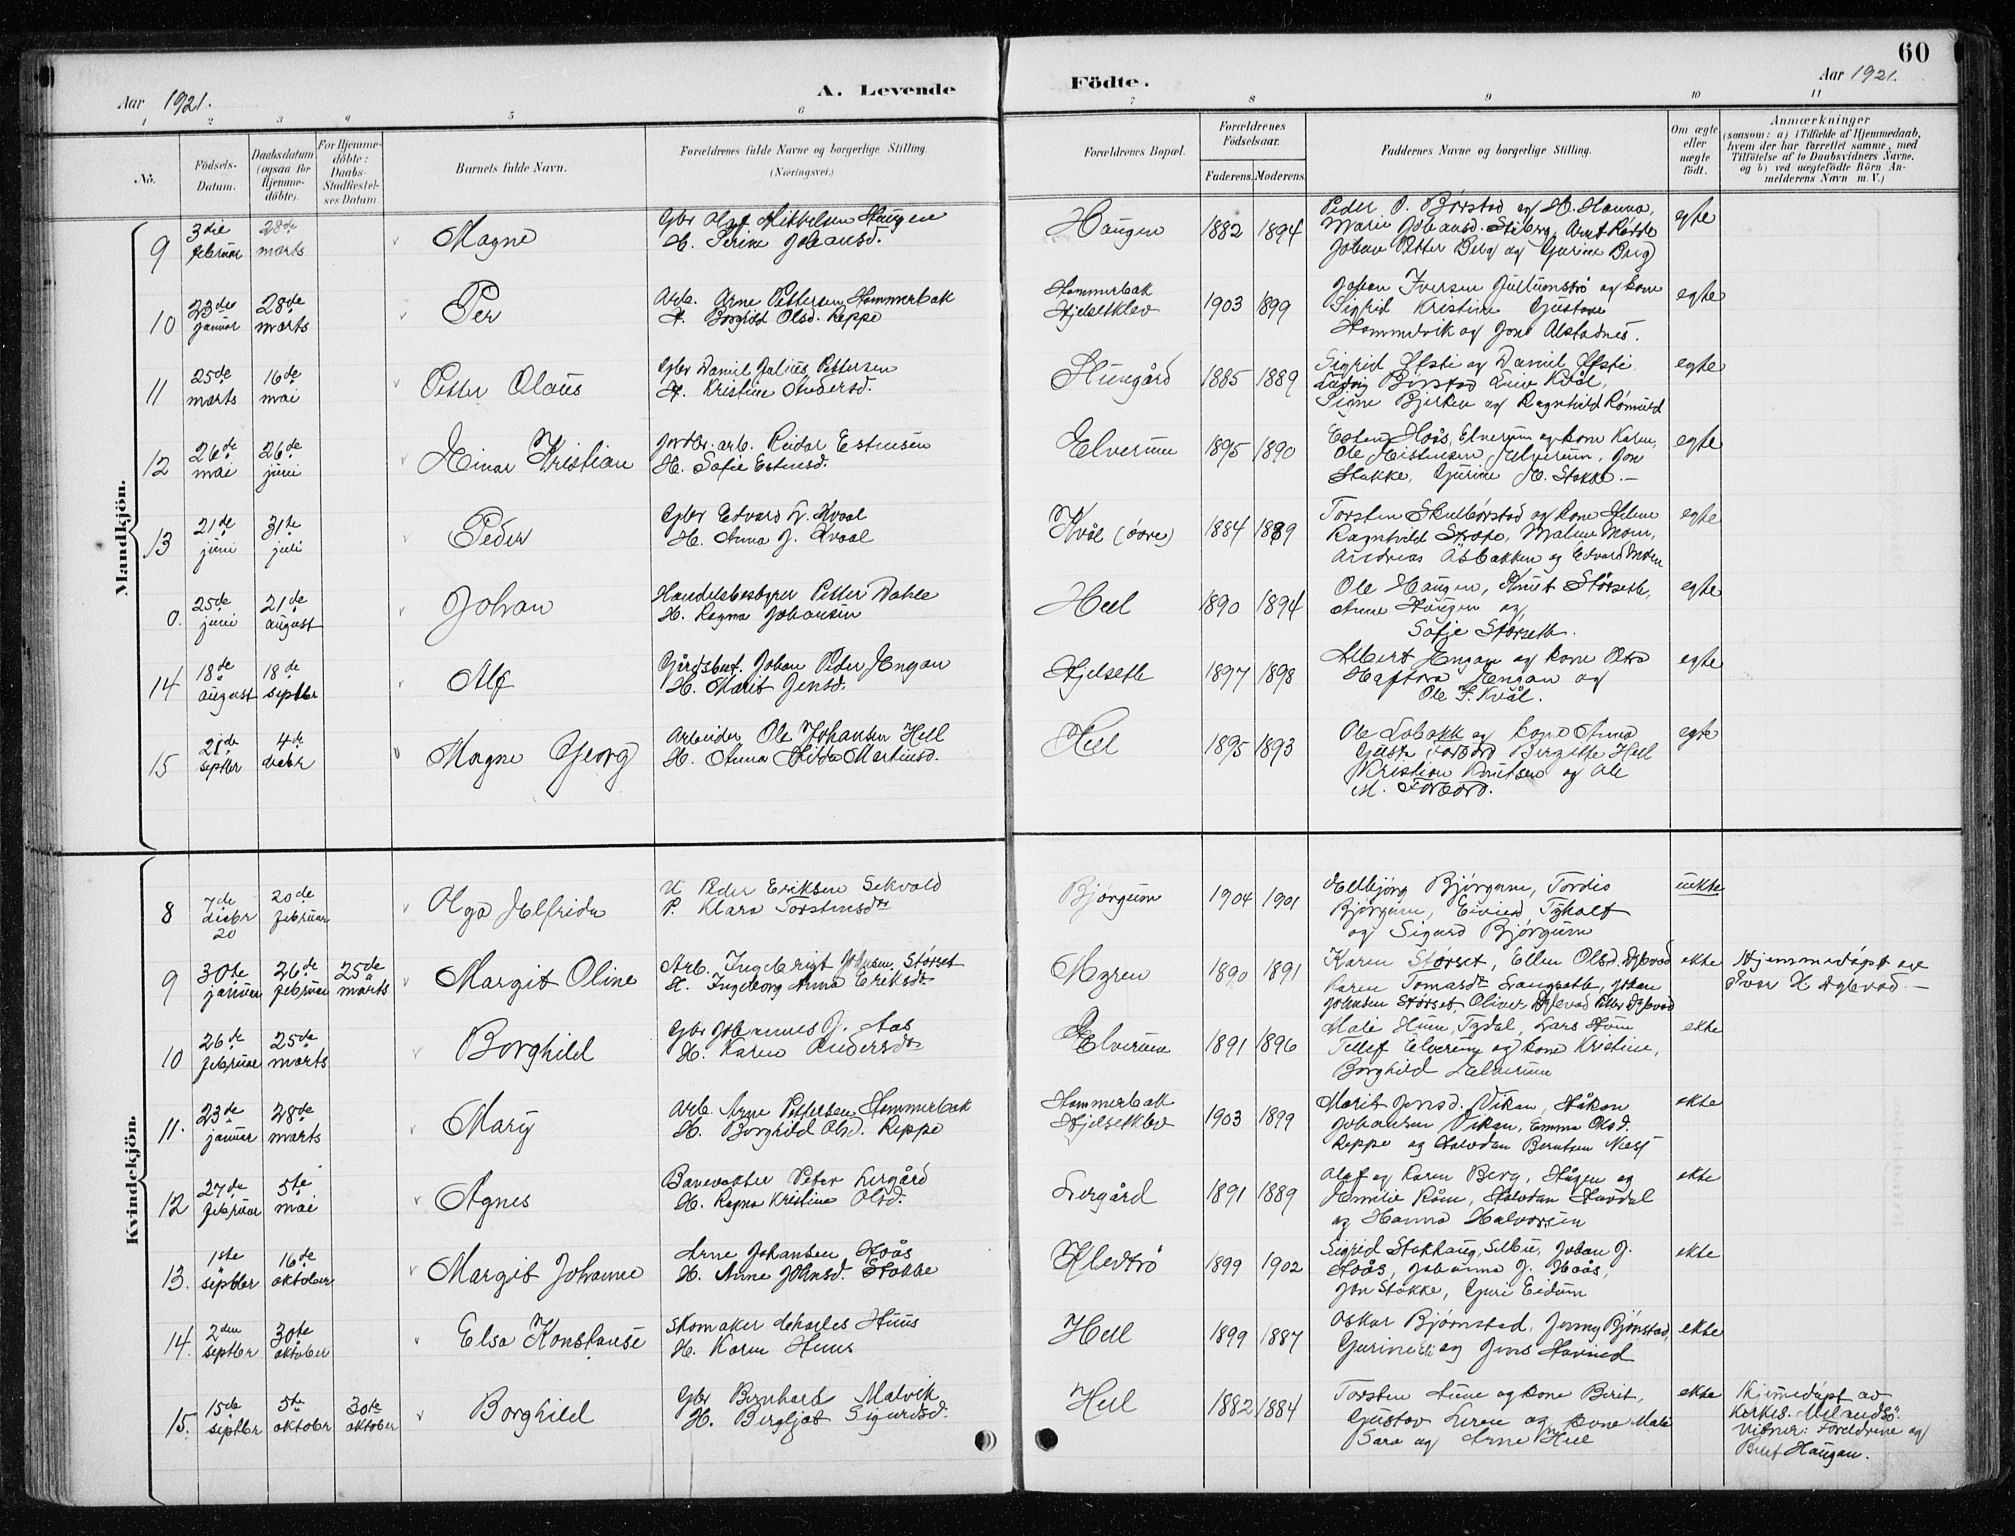 60
Aar 1921.
A. Levende
Födte.
Aar 1921.
1 2 3 4 5 6 7 8 9 10 11
No.
Födsels-
Datum.
Daabsdatum
(ogsaa for
Hjemme-
döbte).
For Hjemme-
döbte:
Daabs-
Stadfæstel-
ses Datum.
Barnets fulde Navn.
Forældrenes fulde Navne og borgerlige Stilling.
(Næringsvei.)
Forældrenes Bopæl.
Forældrenes
Födselsaar.
Faderens. Moderens.
Faddernes Navne og borgerlige Stilling.
Om ægte
eller
uægte
födt.
Anmærkninger
(saasom: a) i Tilfælde af Hjemmedaab,
hvem der har forrettet samme, med
Tilföielse af to Daabsvidners Navne,
og b) ved uægtefödte Börn An-
melderens Navn m. V.)
Mandkjön.
9
3die
februar
28de
marts
Magne
Gbr Olaf Mikkelsen Haugen
H. Perine Johansd.
Haugen
1882 1894
Peder O. Børstad og H. Hanna,
Marie Johansd. Stiberg, Arnt Rødde
Johan Petter Berg og Gurine Berg
egte
10
23de
januar
28de
marts
Per
Arb. Arne Pettersen Hommerbak
H. Borghild Olsd. Reppe
Hommerbak
Hjelsetklev
1903 1899
Johan Iversen og kone
Sigrid Kristine Gustava
Hommelvik og Jone Alstadnes.
egte
11
25de
marts
16de
mai
Petter Olaus
Gbr Daniel Julius Pettersen
H. Kristine Andersd.
1885 1889
Sigrid Efsti og Daniel Efsti
Ludvig Børstad Kvål,
Signe Bjerken og Ragnhild
egte
12
26de
mai
26de
juni
Einar Kristian
Jordbr. arb. Reidar Estensen
H. Sofie Estensd.
Elverum
1895 1890
Esten Hoås, Elverum og kone Karen,
Ole Elverum, Jon
Stokke, Gurine M. Stokke.
egte
13
21de
juni
31te
juli
Peder
Gbr Edvard L. Kvaal
H. Anna J. Kvaal
Kvål (øvre)
1884 1889
Torsten Skulbørstad og kone Elline
Ragnhild Moen,
Andreas Åsbakken og Edvard Moen
egte
0.
25de
juni
21de
august
Johan
Handelsbestyrer Petter Dahle
H. Ragna Johansen
Hell
1890 1894
Ole Haugen, Knut Størseth,
Anne Haugen og
Sofie Størseth.
egte
14
18de
august
18de
septbr
Alf
Gårdsbest. Johan Peder Engan
H. Marit Jensd.
Hjelseth
1897 1898
Albert Engan og kone Olva
Haftora Engan og
Ole F. Kvål.
egte
15
21de
septbr
4de
decbr
Magne Georg
Arbeider Ole Johansen Hell
H. Anna Hilda Martinsd.
Hell
1895 1893
Ole Lobakk og kone Anna
Forbord Birgitte Hell
Kristian Knutsen og Ole
M. Forbord.
egte
Kvindekjön.
8
7de
decbr
20
20de
februar
Olga Elfrida
U. Peder Eriksen Sekvold
P. Klara Torstensdtr
Bjørgum
1904 1901
Ellbjørg Bjørgum, Tordis
Bjørgum, Eivind,
og Sigurd Bjørgum
uekte
9
30te
januar
26de
februar
25de
marts
Margit Oline
Arb. Ingebrigt Johnsen Størset
H. Ingeborg Anna Eriksdtr
Myren
1890 1891
Karen Størset, Ellen Olsd. Dyblevad
Karen Tomasdtr Langseth, Johan
Johnsen Størset Oliver Dyblevad Peter Dyblevad
ekte
Hjemmedøpt av
Ivar H. Dyblevad.
10
26de
februar
25de
marts
Borghild
Gbr Johannes J. Aas
H. Karen Andersdtr
Elverum
1891 1896
Male Huus, Tydal, Lars Huus
Tellef Elverum og kone Kristine,
Borghild Elverum
ekte
11.
23de
januar
28de
marts
Mary
Arb. Arne Pettersen Hommerbak
H. Borghild Olsd. Reppe
Hommerbak
Hjelsetklev
1903 1899
Marit Jensd. Vikan, Håkon
Johansen Vikan, Emma Olsd.
Reppe og Halvdan Berntsen
ekte
12
27de
februar
5te
mai
Agnes
Banevokter Peter Lergård
H. Ragna Kristine Olsd.
Lergård
1891 1889
Olaf og Karen Berg, Hågen og
Emilie Halvdan
og Hanna Halvorsen
ekte
13.
1ste
septbr
16de
oktober
Margit Johanne
Arne Johansen Hoås
H. Anne Johnsd. Stokke
Kledtrø
1899 1902
Sigrid Stokhaug, Selbu, Johan J.
Hoås, Johanna J. Hoås,
Jon Stokke, Guri Eidum
ekte
14.
2den
septbr
30te
oktober
Elsa Konstanse
Skomaker Charles Huus
H. Karen Huus
Hell
1899 1887
Oskar Bjørnstad, Jenny Bjørnstad,
Gurine og Jens
ekte
15.
15de
septbr
5te
oktober
30te
oktober
Borghild
Gbr Bernhard Malvik
H. Bergljot Sigurdsd.
Hell
1882 1884
Torsten Aune og kone Berit,
Gustav Leren og kone Male
Sara og Arne Hell
ekte
Hjemmedøpt av
Kirkes.
vitner: Foreldrene og
Haugan.